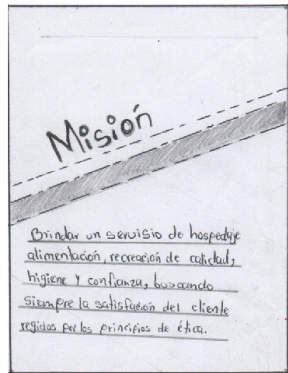 Misión
Brindar un servisio de hospedaje
alimentación, recreación de calidad,
higiene y confianza, buscando
siempre la satisfación del cliente
regidos por los principios de ética.